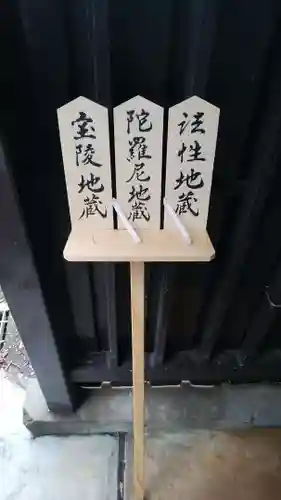 法性地蔵
陀羅尼地蔵
宝陵地蔵